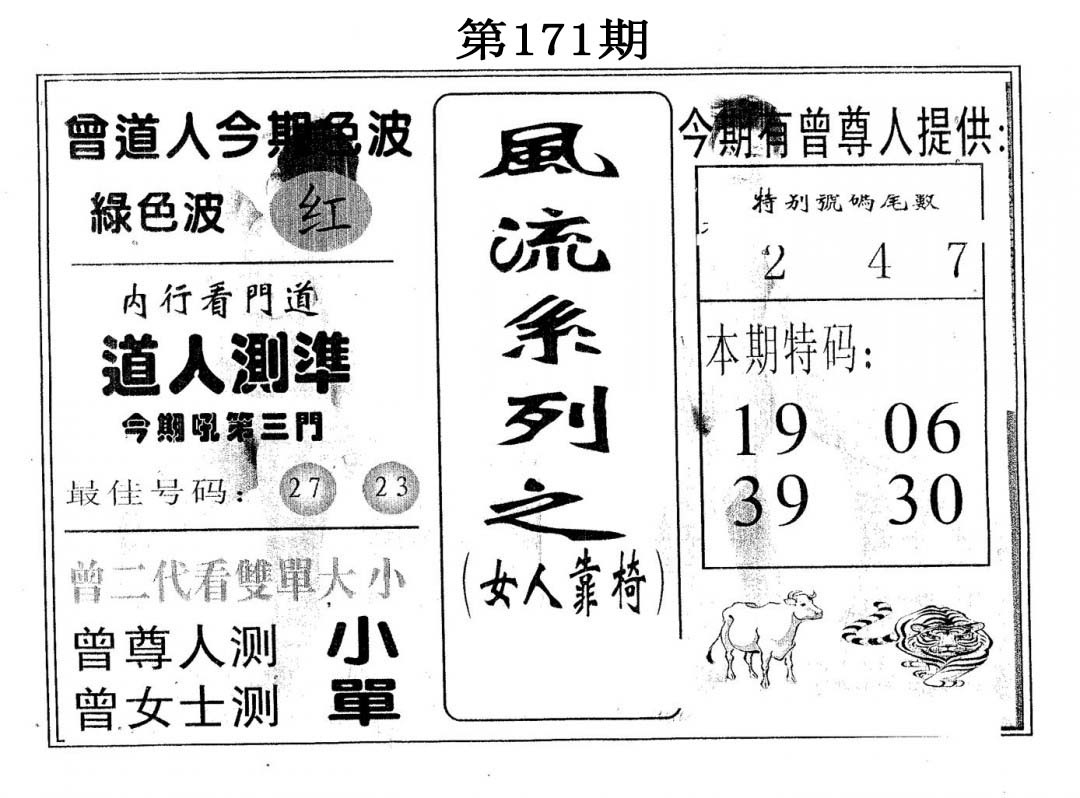 第171期
曾道人今期色波
綠色波 红
内行看門道
道人測準
今期吼第三門
最佳号码： 27 23
曾二代看雙單大小
曾尊人测 小
曾女士测 單
風流系列之
（女人靠椅）
今期有曾尊人提供：
特别號碼尾數
2 4 7
本期特码：
19 06
39 30